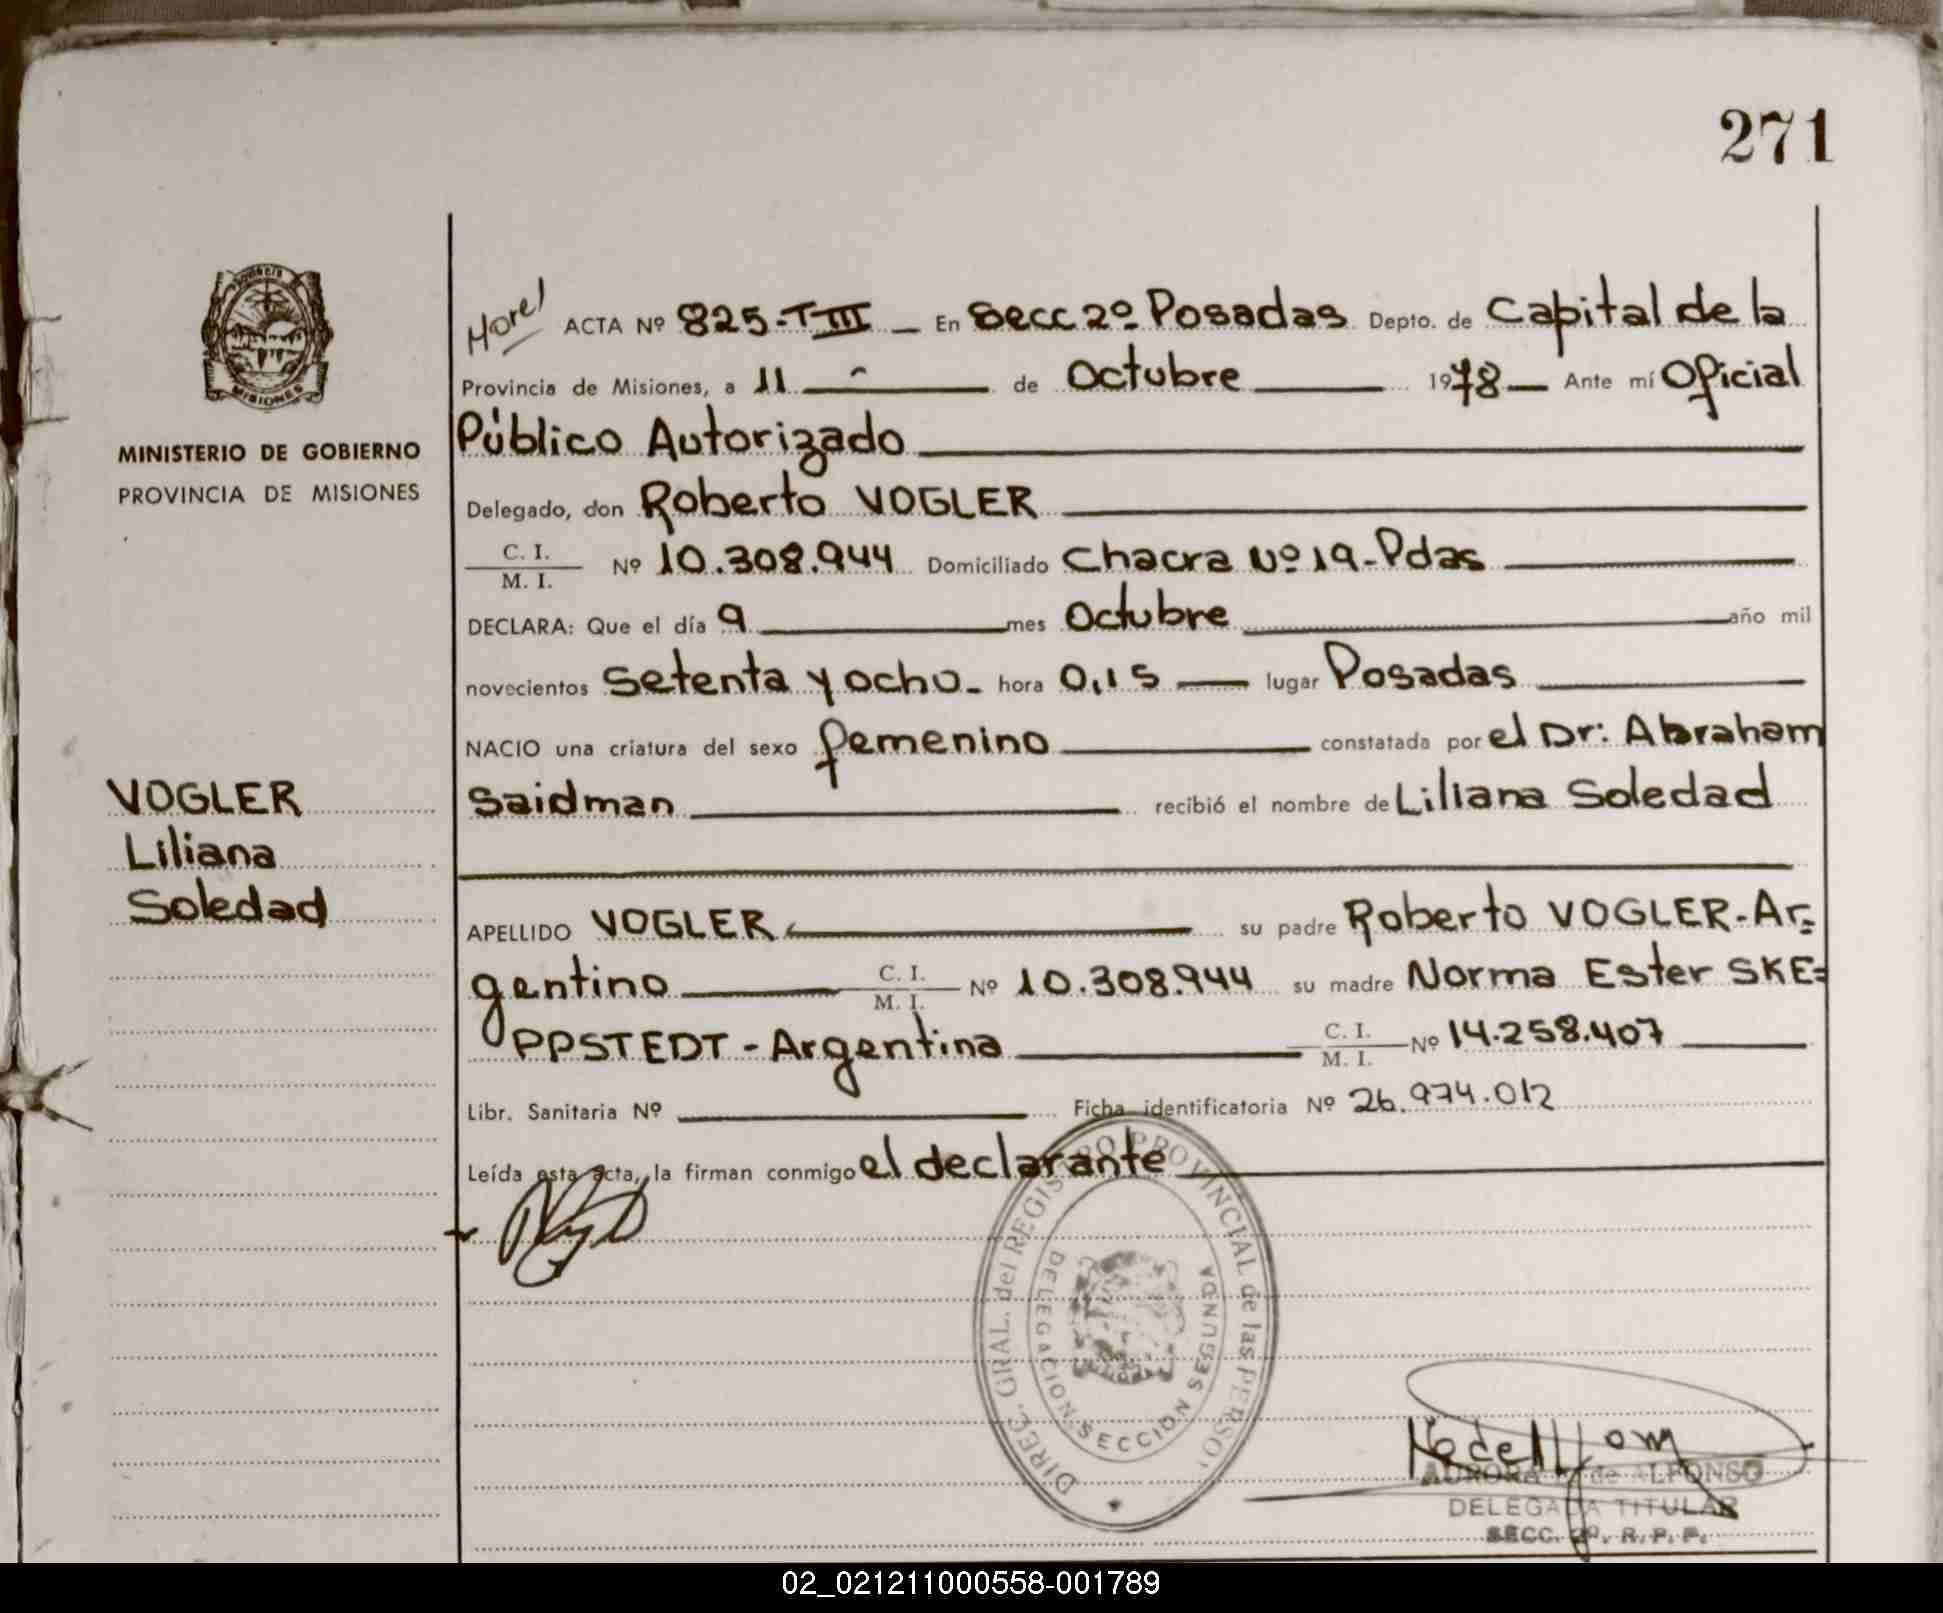 271
Horel ACTA Nº 825-TIII En Secc 2º Posadas Depto. de Capital de la
Provincia de Misiones, a 11 de Octubre 1978 Ante mí Oficial
MINISTERIO DE GOBIERNO
PROVINCIA DE MISIONES
MISIONES
Público Autorizado
Delegado, don Roberto VOGLER
C. I.
M. I.
Nº 10.308.944 Domiciliado Chacra Nº 19-Pdas
DECLARA: Que el día 9 mes Octubre año mil
novecientos Setenta y ocho- hora 0,15 lugar Posadas
NACIO una criatura del sexo femenino constatada por el Dr: Abraham
Saidman recibió el nombre de Liliana Soledad
VOGLER
Liliana
Soledad
APELLIDO VOGLER su padre Roberto VOGLER-Ar=
gentino C. I. M. I. Nº 10.308.944 su madre Norma Ester SKE=
PPSTEDT - Argentina C. I. M. I. Nº 14.258.407
Libr. Sanitaria Nº Ficha identificatoria Nº 26.974.012
Leída esta acta, la firman conmigo el declarante
DIREC. GRAL. del REGISTRO PROVINCIAL de las PERSO
DELEGACION SECCION SEGUNDA
AURORA de ALFONSO
DELEGADA TITULAR
SECC. 2º. R. P. P.
02_021211000558-001789